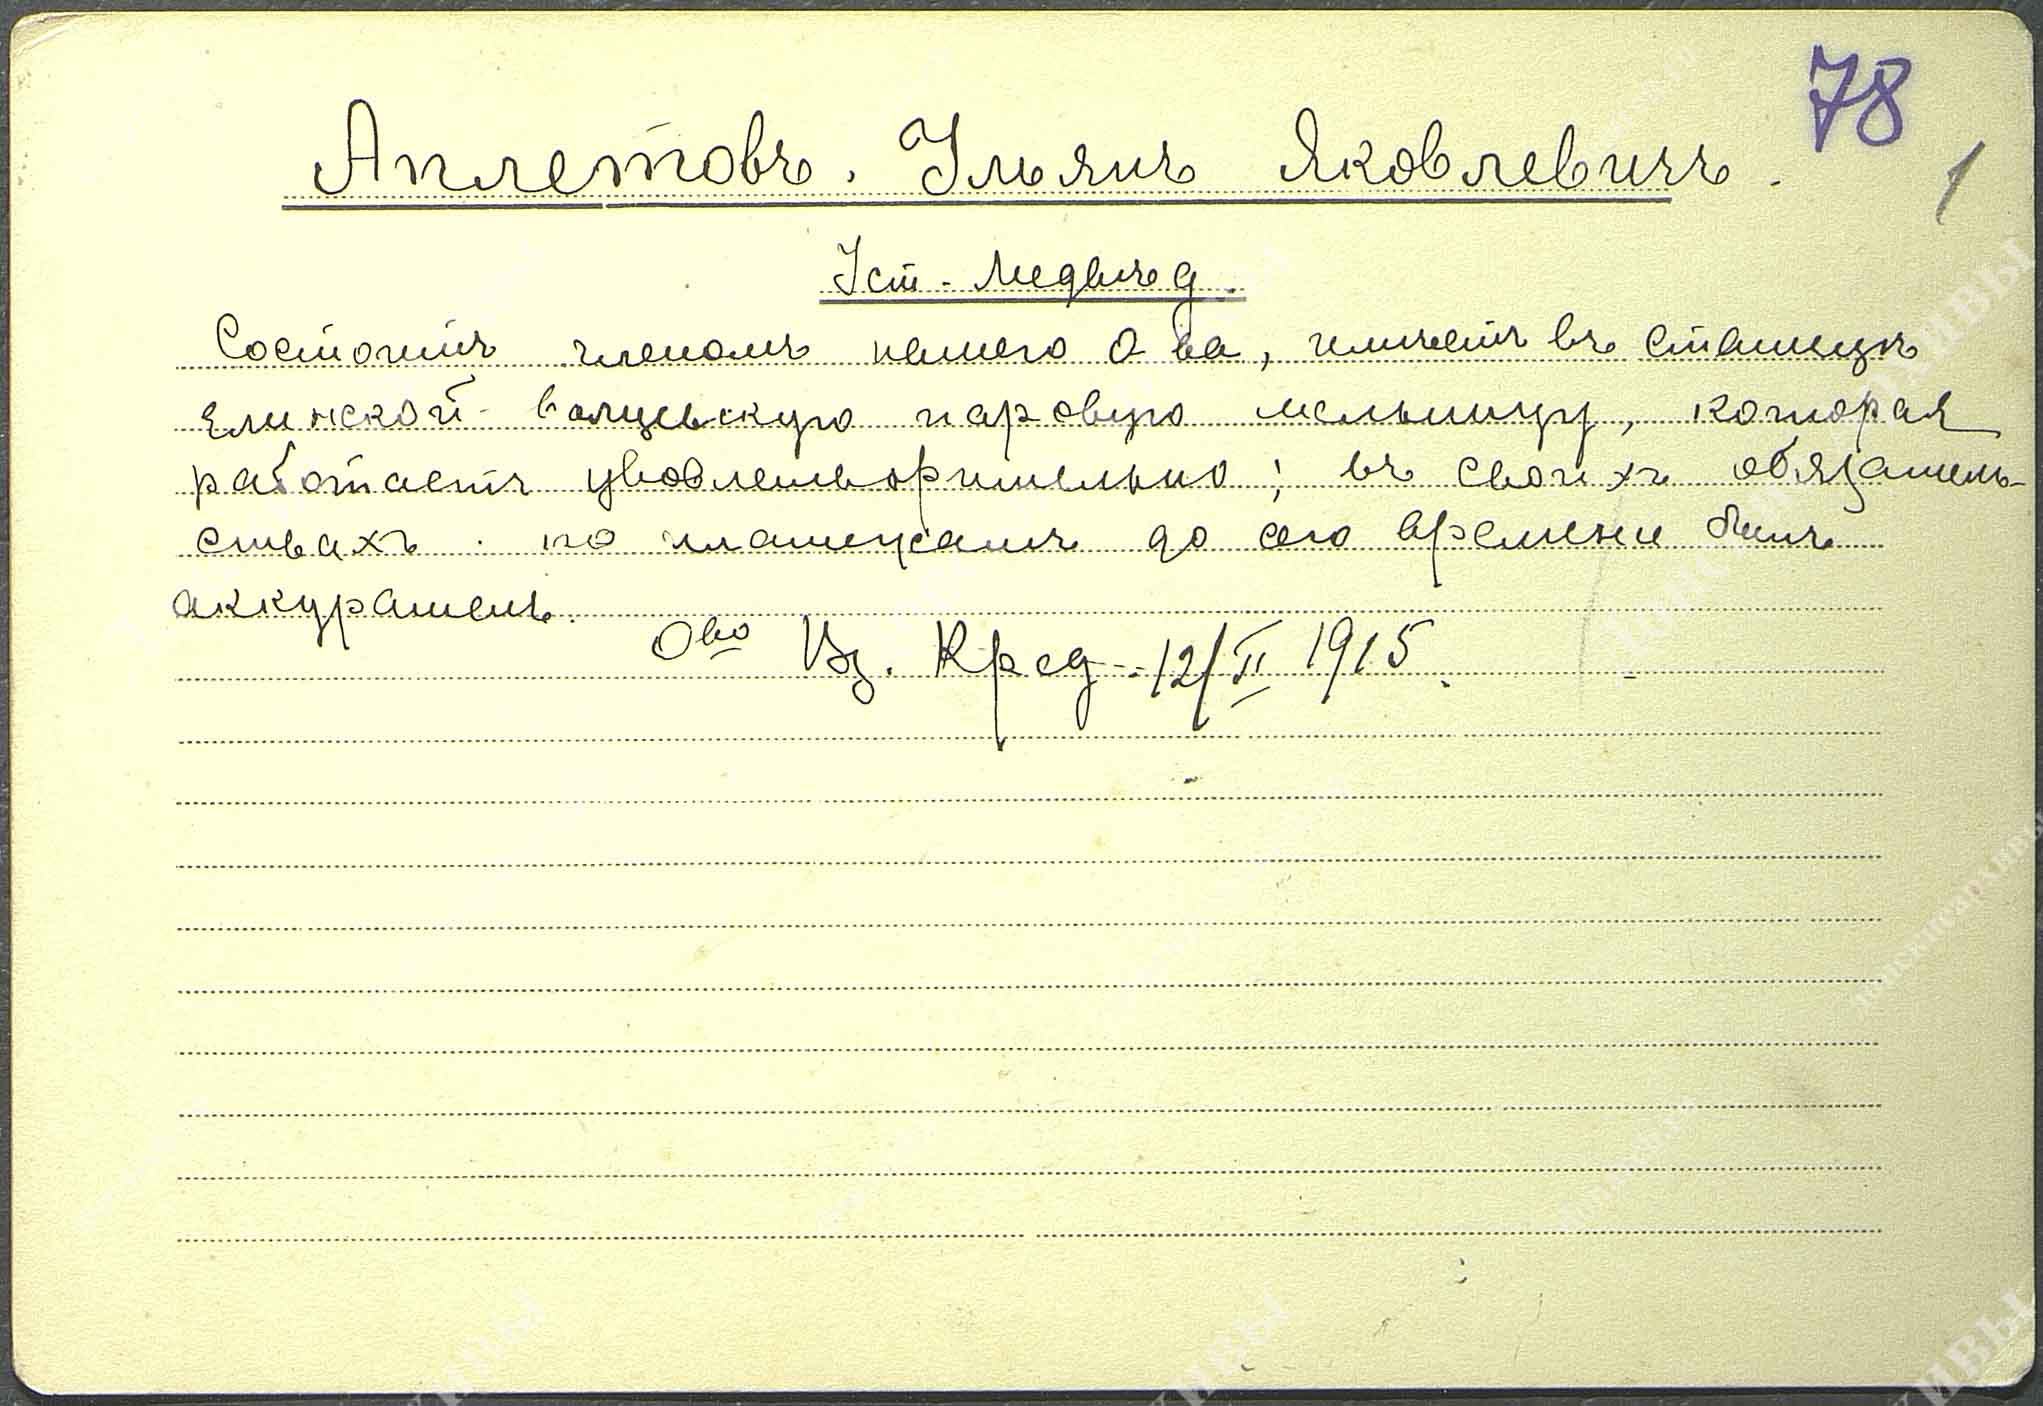 78
1
Аплетовъ. Ульянъ Яковлевичъ.
Уст-Медвѣд.
Состоитъ членомъ нашего О ва, имѣетъ въ станицѣ
Елинской вальцевскую паровую мельницу, которая
работаетъ удовлетворительно; въ своихъ обязатель-
ствахъ по платежамъ до сего времени былъ
аккуратенъ.
Ово Вз. Кред. 12/II 1915.